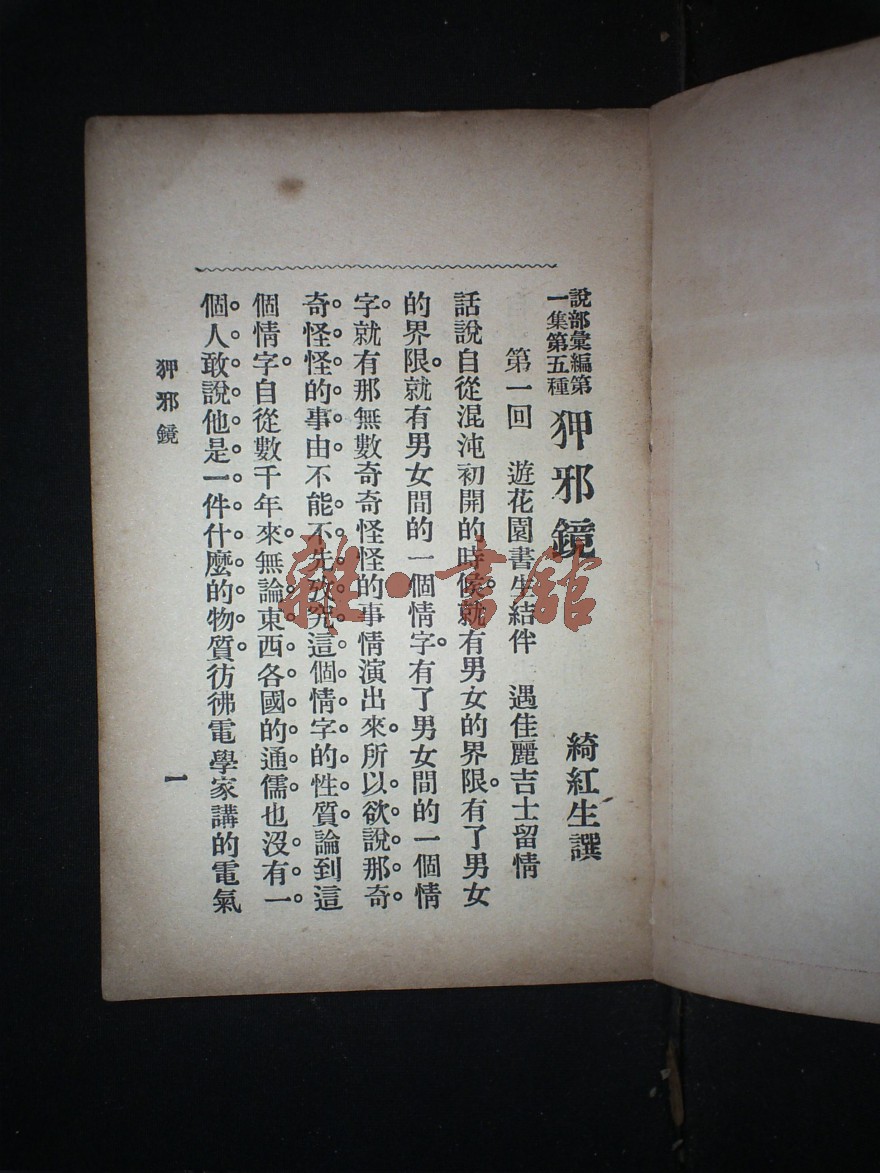 說部彙編第
一集第五種
狎邪鏡
綺紅生譔
第一回 遊花園書生結伴 遇佳麗吉士留情
話說自從混沌初開的時候。就有男女的界限。有了男女
的界限。就有男女間的一個情字。有了男女間的一個情
字。就有那無數奇奇怪怪的事情演出來。所以欲說那奇
奇怪怪的事由不能不先攷究這個情字的性質。論到這
個情字。自從數千年來。無論東西各國的通儒也沒有一
個人敢說他是一件什麼的物質。彷彿電學家講的電氣
狎邪鏡
一
雜·書館